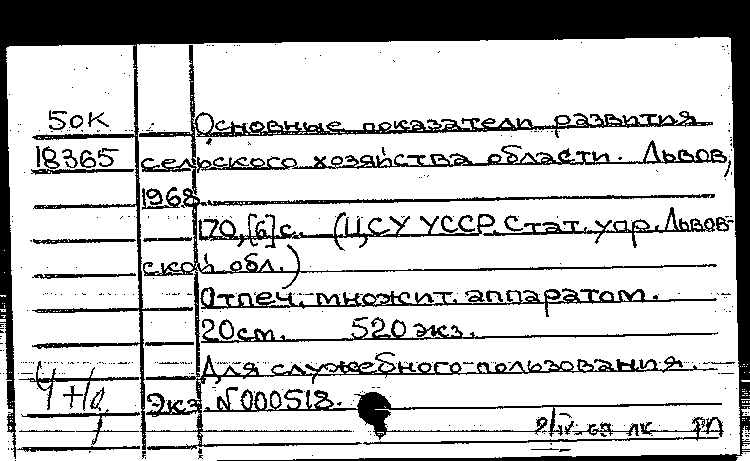 50К
Основные показатели развития
18365 сельского хозяйства области. Львов,
1968.
170,[6]с. (ЦСУ УССР. Стат. упр. Львов-
ской обл.)
Отпеч. множит. аппаратом.
20см. 520 экз.
Для служебного пользования.
Экз. №000518.